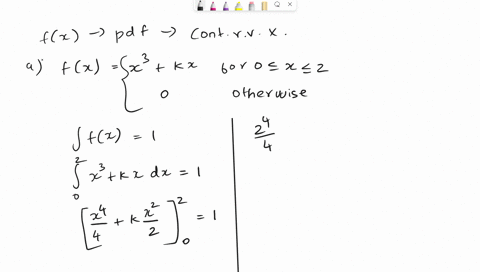 f(x) → pdf → Cont. r.v. X.
a) f(x) = { x³ + kx for 0 ≤ x ≤ 2
0 otherwise
∫ f(x) = 1
∫₀² x³ + kx dx = 1
[x⁴/4 + k x²/2]₀² = 1
2⁴/4